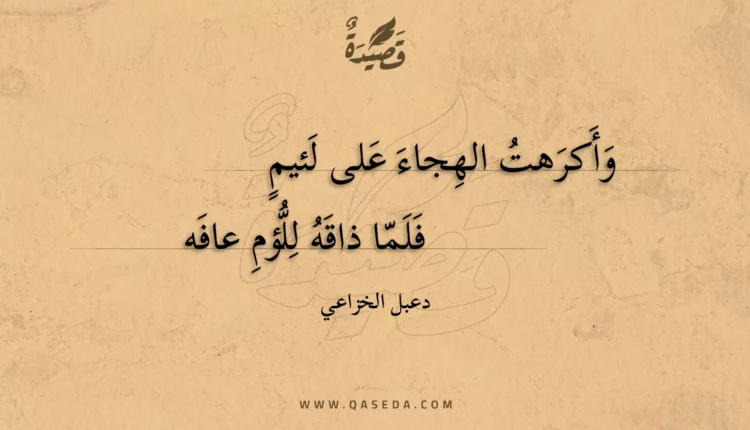 قَصِيدَةٌ
وَأَكرَهتُ الهِجاءَ عَلى لَئيمٍ
فَلَمّا ذاقَهُ لِلُّؤمِ عافَه
دعبل الخزاعي
WWW.QASEDA.COM